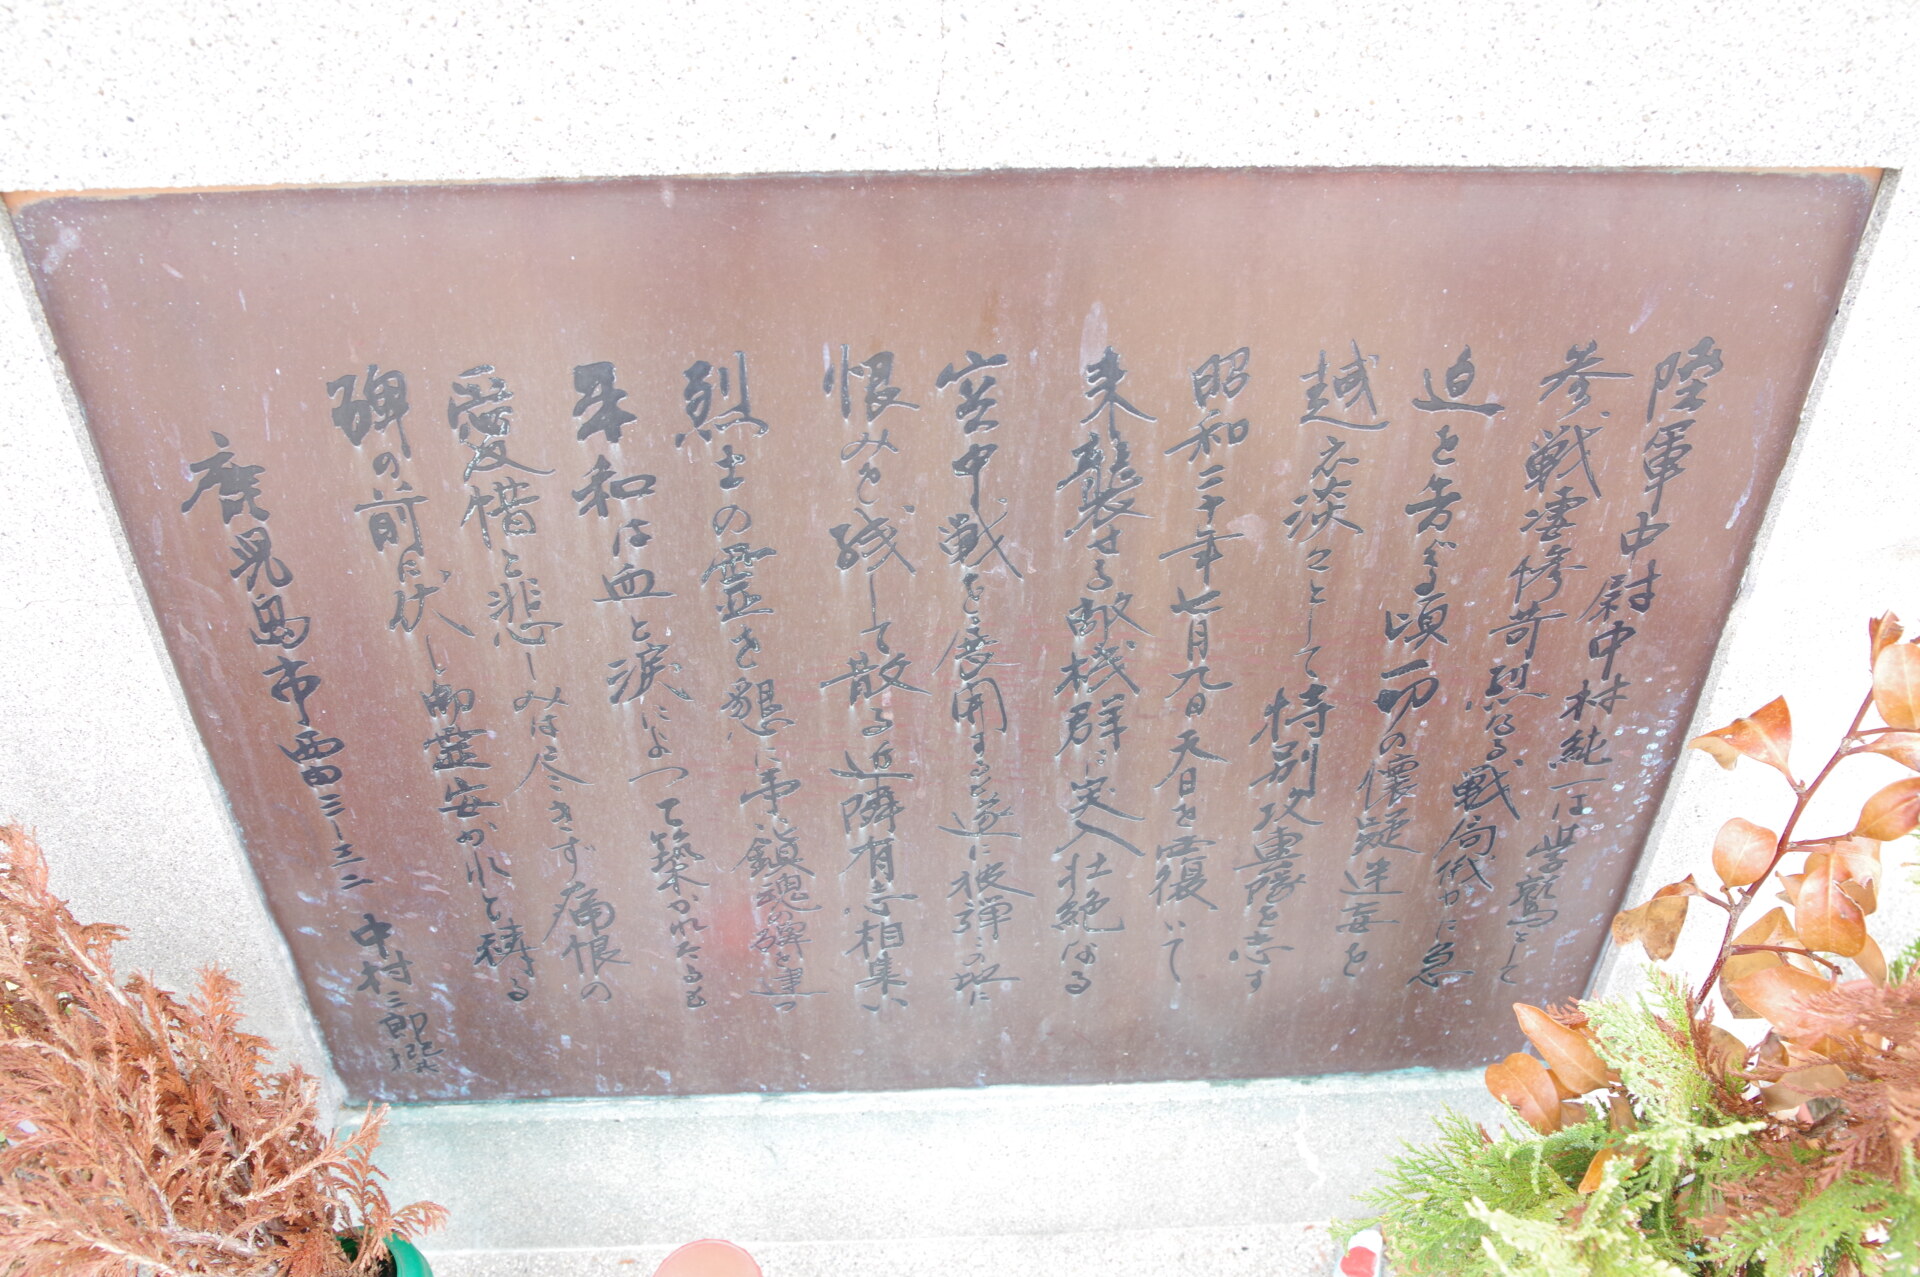 陸軍中尉中村純一は学鷲として
参戦凄惨苛烈なる戦局俄かに急
迫を告ぐる頃一切の懐疑迷妄を
越え淡々として特別攻撃隊を志す
昭和二十年七月九日天日を覆いて
来襲せる敵機群に突入壮絶なる
空中戦を展開するも遂に被弾この地に
恨みを残して散る近隣有志相集い
烈士の霊を懇に弔い鎮魂の碑を建つ
平和は血と涙によって築かれたるも
愛惜と悲しみは尽きず痛恨の
碑の前に伏し御霊安かれと祷る
鹿児島市西田三ー三ー二 中村三郎撰